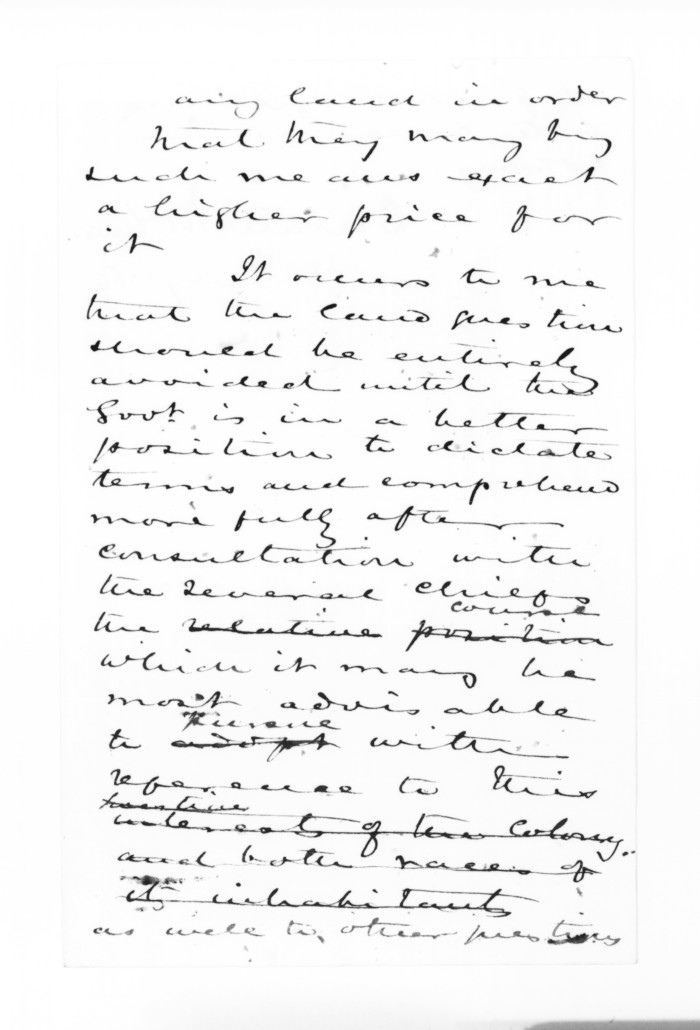 any land in order
that they may by
such means exact
a higher price for
it
It occurs to me
that the land question
should be entirely
avoided until the
Govt. is in a better
position to dictate
terms and comprehend
more fully after
consultation with
the several chiefs
course
the relative position
which it may be
most advisable
pursue
to adopt with
reference to this
question
interests of the Colony.
and both races of
its inhabitants
as well to other questions